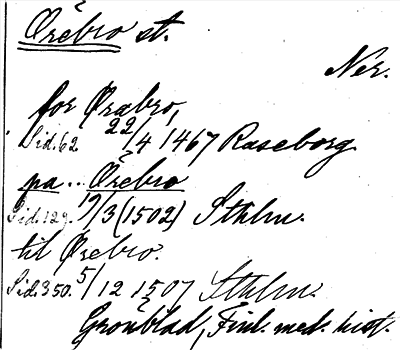 Örebro st.
Ner.
for Ørabro,
Sid. 62 22/4 1467 Raseborg
pa.. Örebro
Sid. 129. 19/3 (1502) Sthlm.
til Ørebro.
Sid. 350. 5/12 1507 Sthlm.
Grönblad, Finl. med. hist.